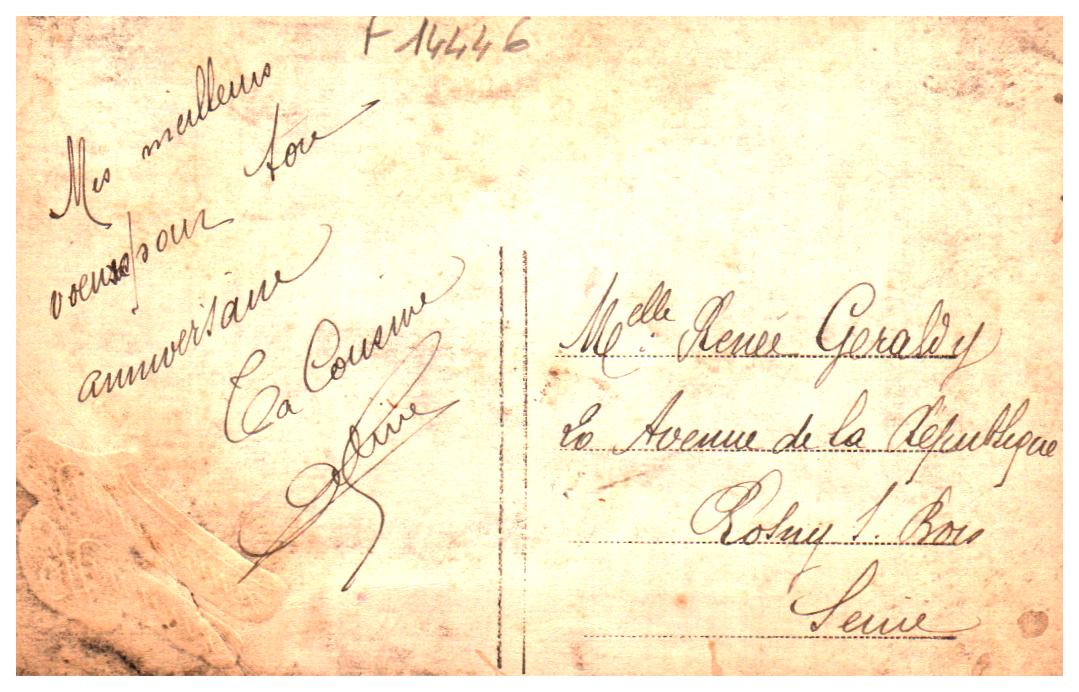 F 14446
Mes meilleurs
voeux pour ton
anniversaire
Ta Cousine
Melle Renée Geraldy
20 Avenue de la République
Rosny S. Bois
Seine